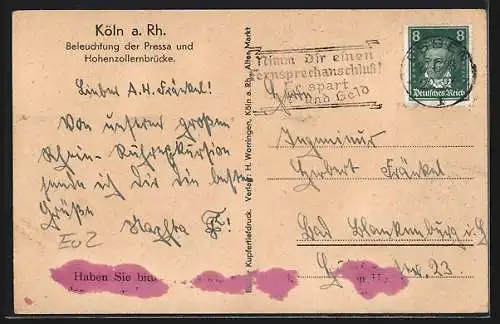 Köln a. Rh.
Beleuchtung der Pressa und
Hohenzollernbrücke.
8 8
Deutsches Reich
Nimm Dir einen
Fernsprechanschluß!
spart
und Geld
Lieber A. H. Fränkel!
Von unserer großen
Rhein-Ruhrexkursion
sende ich Dir die besten
Grüße
Herrn
Ingenieur
Herbert Fränkel
Bad Blankenburg
23
Kupfertiefdruck. Verlag: H. Worringen, Köln a. Rh., Alter Markt
Haben Sie